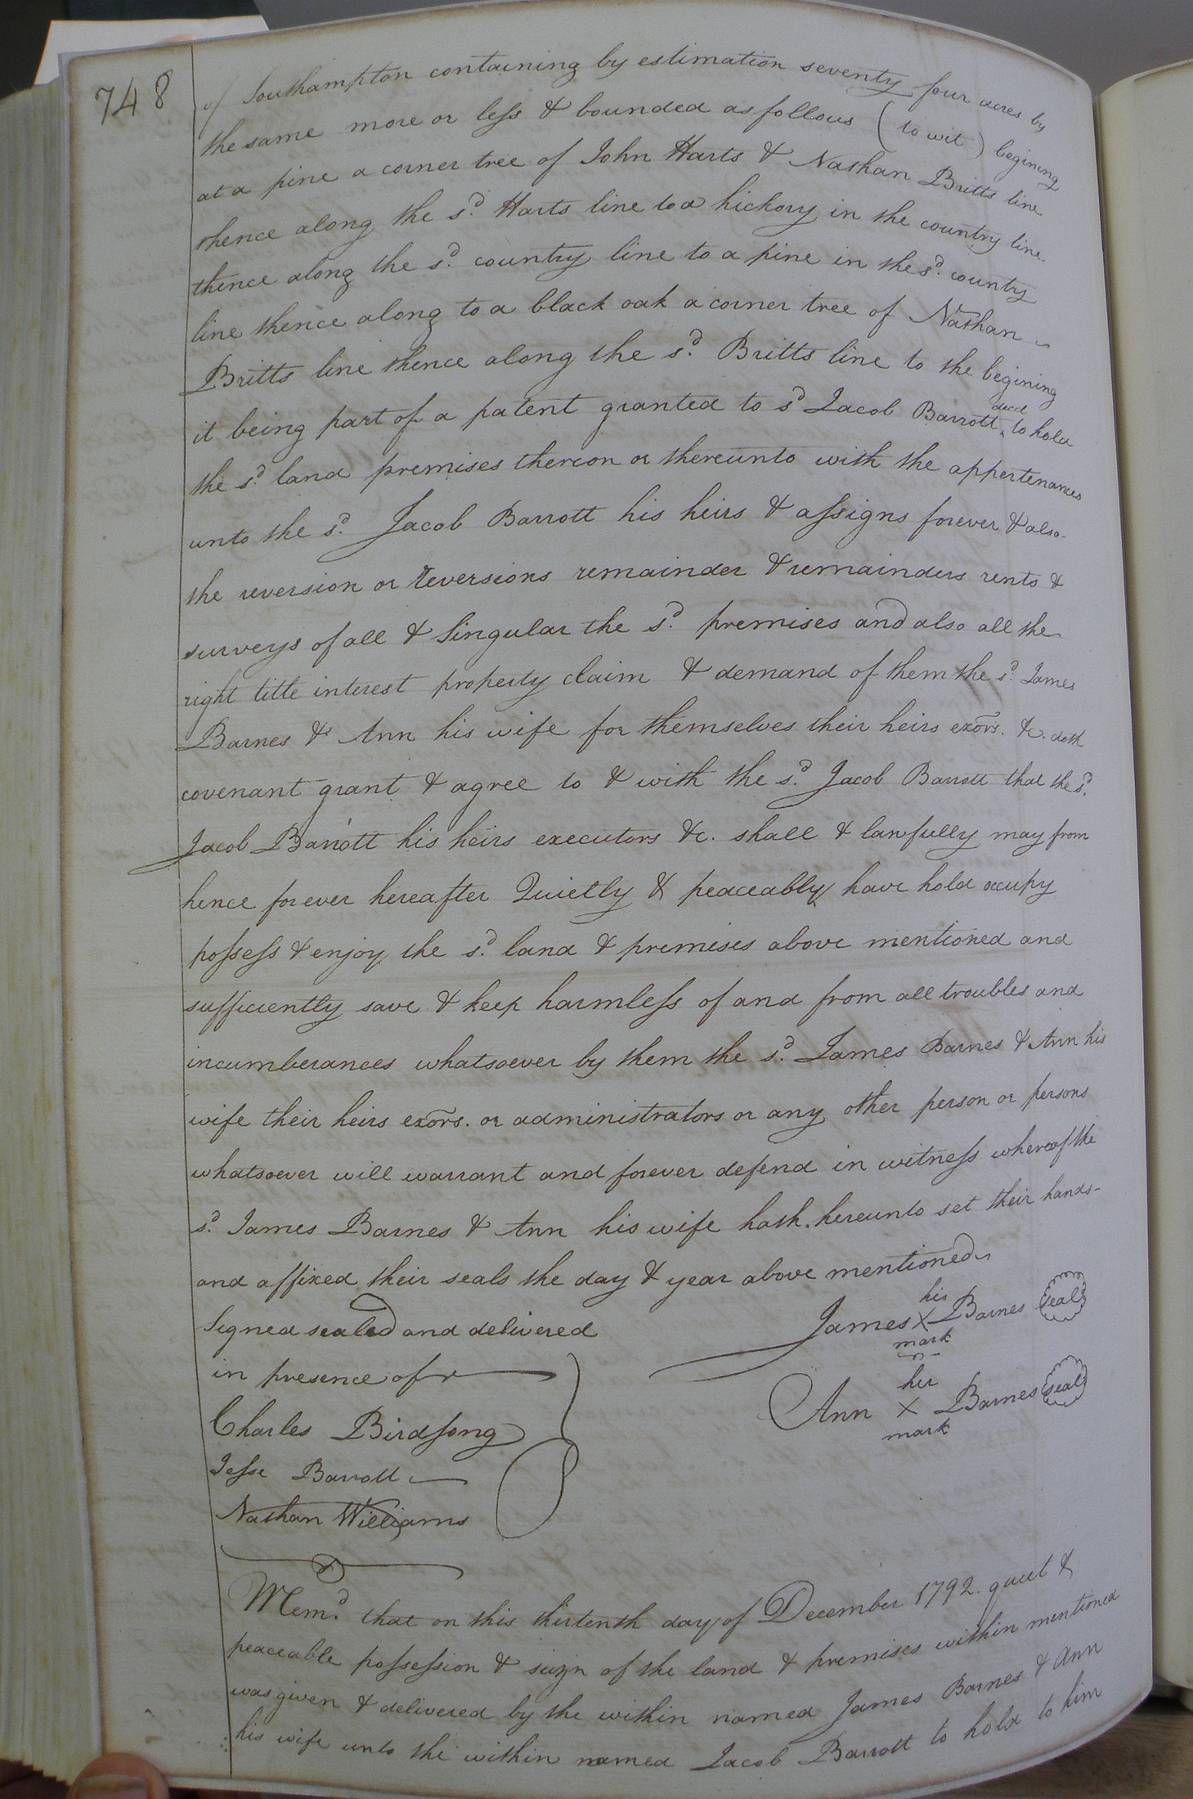 748
of Southampton containing by estimation seventy four acres by
the same more or less & bounded as follows (to wit) begining
at a pine a corner tree of John Harts & Nathan Britts line
thence along the sd. Harts line to a hickory in the country line
thence along the sd. country line to a pine in the sd. country
line thence along to a black oak a corner tree of Nathan
Britts line thence along the sd. Britts line to the begining
it being part of a patent granted to sd Jacob Barrott decd to hold
the sd. land premises thereon or thereunto with the appertenances
unto the sd. Jacob Barrott his heirs & assigns forever & also
the reversion or reversions remainder & remainders rents &
surveys of all & Singular the sd. premises and also all the
right title interest property claim & demand of them the sd. James
Barnes & Ann his wife for themselves their heirs exors. &c. doth
covenant grant & agree to & with the sd. Jacob Barrott that the sd.
Jacob Barrott his heirs executors &c. shall & lawfully may from
hence for ever hereafter Quietly & peaceably have hold occupy
possess & enjoy the sd. land & premises above mentioned and
sufficiently save & keep harmless of and from all troubles and
incumberances whatsoever by them the sd. James Barnes & Ann his
wife their heirs exors. or administrators or any other person or persons
whatsoever will warrant and forever defend in witness whereof the
sd. James Barnes & Ann his wife hath hereunto set their hands
and affixed their seals the day & year above mentioned
Signed sealed and delivered
in presence of
Charles Birdsong
Jesse Barrott
Nathan Williams
his
James X Barnes seal
mark
her
Ann X Barnes seal
mark
Memd. that on this thirtenth day of December 1792. quiet &
peaceable possession & seizn of the land & premises within mentioned
was given & delivered by the within named James Barnes & Ann
his wife unto the within named Jacob Barrott to hold to him